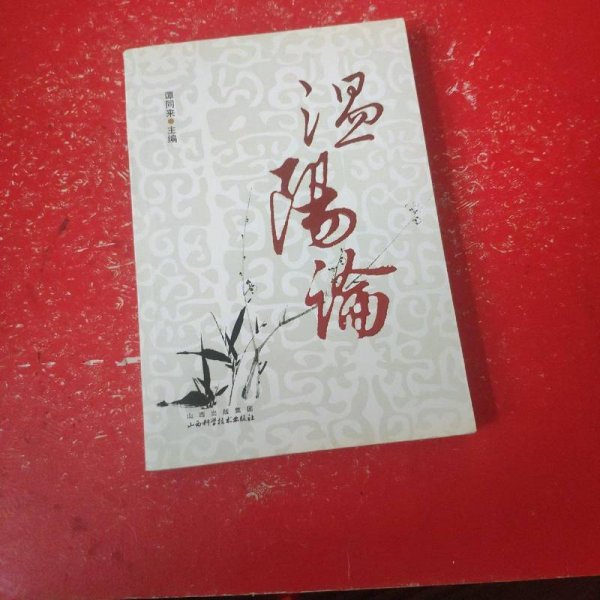 温陽論
谭同来●主编
山西出版集团
山西科学技术出版社